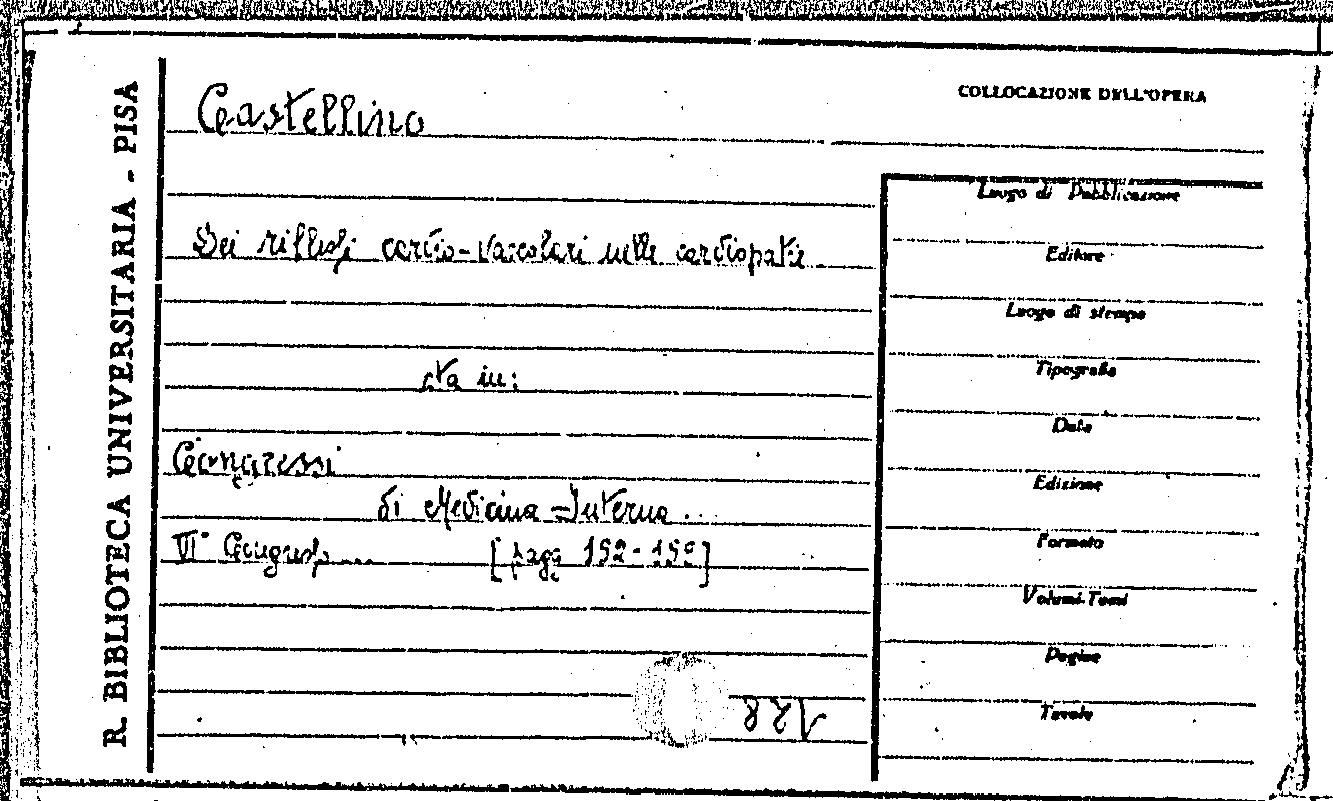 R. BIBLIOTECA UNIVERSITARIA - PISA
Castellino
COLLOCAZIONE DELL'OPERA
Dei riflessi cardio-vascolari nelle cardiopatie
sta in:
Congressi
di Medicina Interna...
VI° Congresso....
[pagg 152-15
Luogo di Pubblicazione
Editore
Luogo di stampa
Tipografia
Data
Edizione
Formato
Volumi-Tomi
Pagine
Tavole